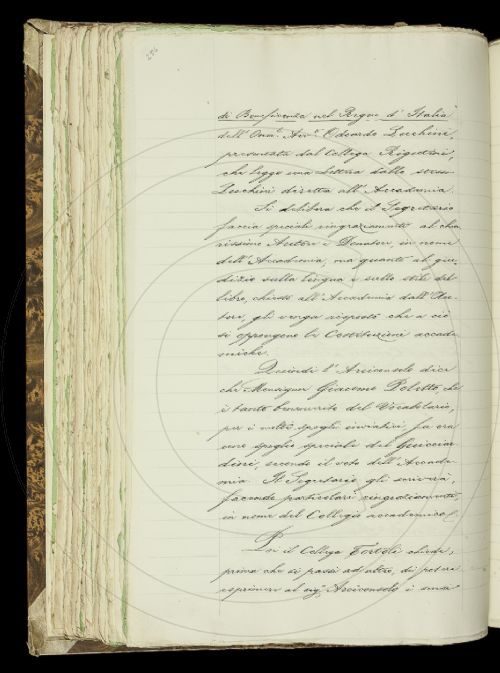 256
di Beneficenza nel Regno d'Italia
dell'On. Avv. Edoardo Lucchini,
presentata dal Collega Rigutini,
che legge una Lettera dello stesso
Lucchini diretta all'Accademia.
Si delibera che il Segretario
faccia speciali ringraziamenti al chia
rissimo Autore e Donatore, in nome
dell'Accademia, ma quanto al giu-
dizio sulla lingua e sullo stile del
libro, chiesto all'Accademia dall'Au-
tore, gli venga risposto che a ciò
si oppongono le Costituzioni accade-
miche.
Quindi l'Arciconsolo dice
che Monsignor Giacomo Poletto, che
è tanto benemerito del Vocabolario,
per i molti spogli inviatici, fa ora
uno spoglio speciale del Guicciar-
dini, secondo il voto dell'Accade-
mia. Il Segretario gli scriverà,
facendo particolari ringraziamenti
in nome del Collegio accademico.
Poi il Collega Tortoli chiede,
prima che si passi ad altro, di potere
esprimere al sig. Arciconsolo i suoi